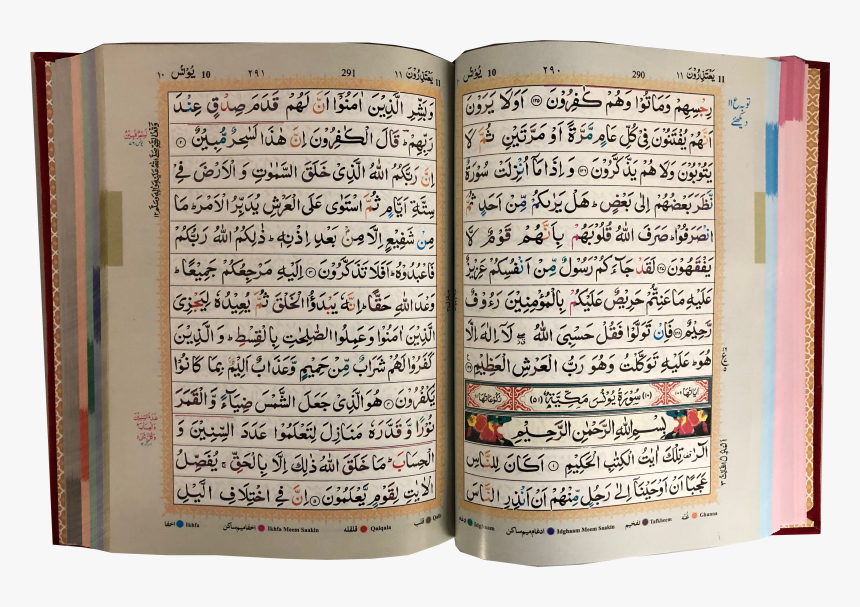 يَعْتَذِرُوْنَ ١١ 290 ٢٩٠ 10 يُوْنُس
رِجْسِهِمْ وَمَاتُوْا وَهُمْ كٰفِرُوْنَ ﴿١٢٥﴾ اَوَلَا يَرَوْنَ
اَنَّهُمْ يُفْتَنُوْنَ فِيْ كُلِّ عَامٍ مَّرَّةً اَوْ مَرَّتَيْنِ ثُمَّ لَا
يَتُوْبُوْنَ وَلَا هُمْ يَذَّكَّرُوْنَ ﴿١٢٦﴾ وَاِذَا مَاۤ اُنْزِلَتْ سُوْرَةٌ
نَّظَرَ بَعْضُهُمْ اِلٰى بَعْضٍ ؕ هَلْ يَرٰىكُمْ مِّنْ اَحَدٍ ثُمَّ
انْصَرَفُوْا ؕ صَرَفَ اللّٰهُ قُلُوْبَهُمْ بِاَنَّهُمْ قَوْمٌ لَّا
يَفْقَهُوْنَ ﴿١٢٧﴾ لَقَدْ جَآءَكُمْ رَسُوْلٌ مِّنْ اَنْفُسِكُمْ عَزِيْزٌ
عَلَيْهِ مَا عَنِتُّمْ حَرِيْصٌ عَلَيْكُمْ بِالْمُؤْمِنِيْنَ رَءُوْفٌ
رَّحِيْمٌ ﴿١٢٨﴾ فَاِنْ تَوَلَّوْا فَقُلْ حَسْبِيَ اللّٰهُ لَاۤ اِلٰهَ اِلَّا
هُوَ ؕ عَلَيْهِ تَوَكَّلْتُ وَهُوَ رَبُّ الْعَرْشِ الْعَظِيْمِ ﴿١٢٩﴾
اٰيَاتُهَا ١٠٩ (١٠) سُوْرَةُ يُوْنُسَ مَكِّيَّةٌ (٥١) رُكُوْعَاتُهَا ١١
بِسْمِ اللّٰهِ الرَّحْمٰنِ الرَّحِيْمِ
الٓرٰ تِلْكَ اٰيٰتُ الْكِتٰبِ الْحَكِيْمِ ﴿١﴾ اَكَانَ لِلنَّاسِ
عَجَبًا اَنْ اَوْحَيْنَاۤ اِلٰى رَجُلٍ مِّنْهُمْ اَنْ اَنْذِرِ النَّاسَ
غُنّه Ghunna تفخيم Tafkheem ادغام ميم ساكن Idghaam Meem Saakin Idghaam
يَعْتَذِرُوْنَ ١١ 291 ٢٩١ 10 يُوْنُس ١٠
وَبَشِّرِ الَّذِيْنَ اٰمَنُوْۤا اَنَّ لَهُمْ قَدَمَ صِدْقٍ عِنْدَ
رَبِّهِمْ ؕ قَالَ الْكٰفِرُوْنَ اِنَّ هٰذَا لَسٰحِرٌ مُّبِيْنٌ ﴿٢﴾
اِنَّ رَبَّكُمُ اللّٰهُ الَّذِيْ خَلَقَ السَّمٰوٰتِ وَالْاَرْضَ فِيْ
سِتَّةِ اَيَّامٍ ثُمَّ اسْتَوٰى عَلَى الْعَرْشِ يُدَبِّرُ الْاَمْرَ ؕ مَا
مِنْ شَفِيْعٍ اِلَّا مِنْۢ بَعْدِ اِذْنِهٖ ؕ ذٰلِكُمُ اللّٰهُ رَبُّكُمْ
فَاعْبُدُوْهُ ؕ اَفَلَا تَذَكَّرُوْنَ ﴿٣﴾ اِلَيْهِ مَرْجِعُكُمْ جَمِيْعًا ؕ
وَعْدَ اللّٰهِ حَقًّا ؕ اِنَّهٗ يَبْدَؤُا الْخَلْقَ ثُمَّ يُعِيْدُهٗ لِيَجْزِيَ
الَّذِيْنَ اٰمَنُوْا وَعَمِلُوا الصّٰلِحٰتِ بِالْقِسْطِ ؕ وَالَّذِيْنَ
كَفَرُوْا لَهُمْ شَرَابٌ مِّنْ حَمِيْمٍ وَّعَذَابٌ اَلِيْمٌۢ بِمَا كَانُوْا
يَكْفُرُوْنَ ﴿٤﴾ هُوَ الَّذِيْ جَعَلَ الشَّمْسَ ضِيَآءً وَّالْقَمَرَ
نُوْرًا وَّقَدَّرَهٗ مَنَازِلَ لِتَعْلَمُوْا عَدَدَ السِّنِيْنَ وَ
الْحِسَابَ ؕ مَا خَلَقَ اللّٰهُ ذٰلِكَ اِلَّا بِالْحَقِّ ۚ يُفَصِّلُ
الْاٰيٰتِ لِقَوْمٍ يَّعْلَمُوْنَ ﴿٥﴾ اِنَّ فِي اخْتِلَافِ الَّيْلِ
قلب قلقله Qalqala اخفا ميم ساكن Ikhfa Meem Saakin اخفا Ikhfa